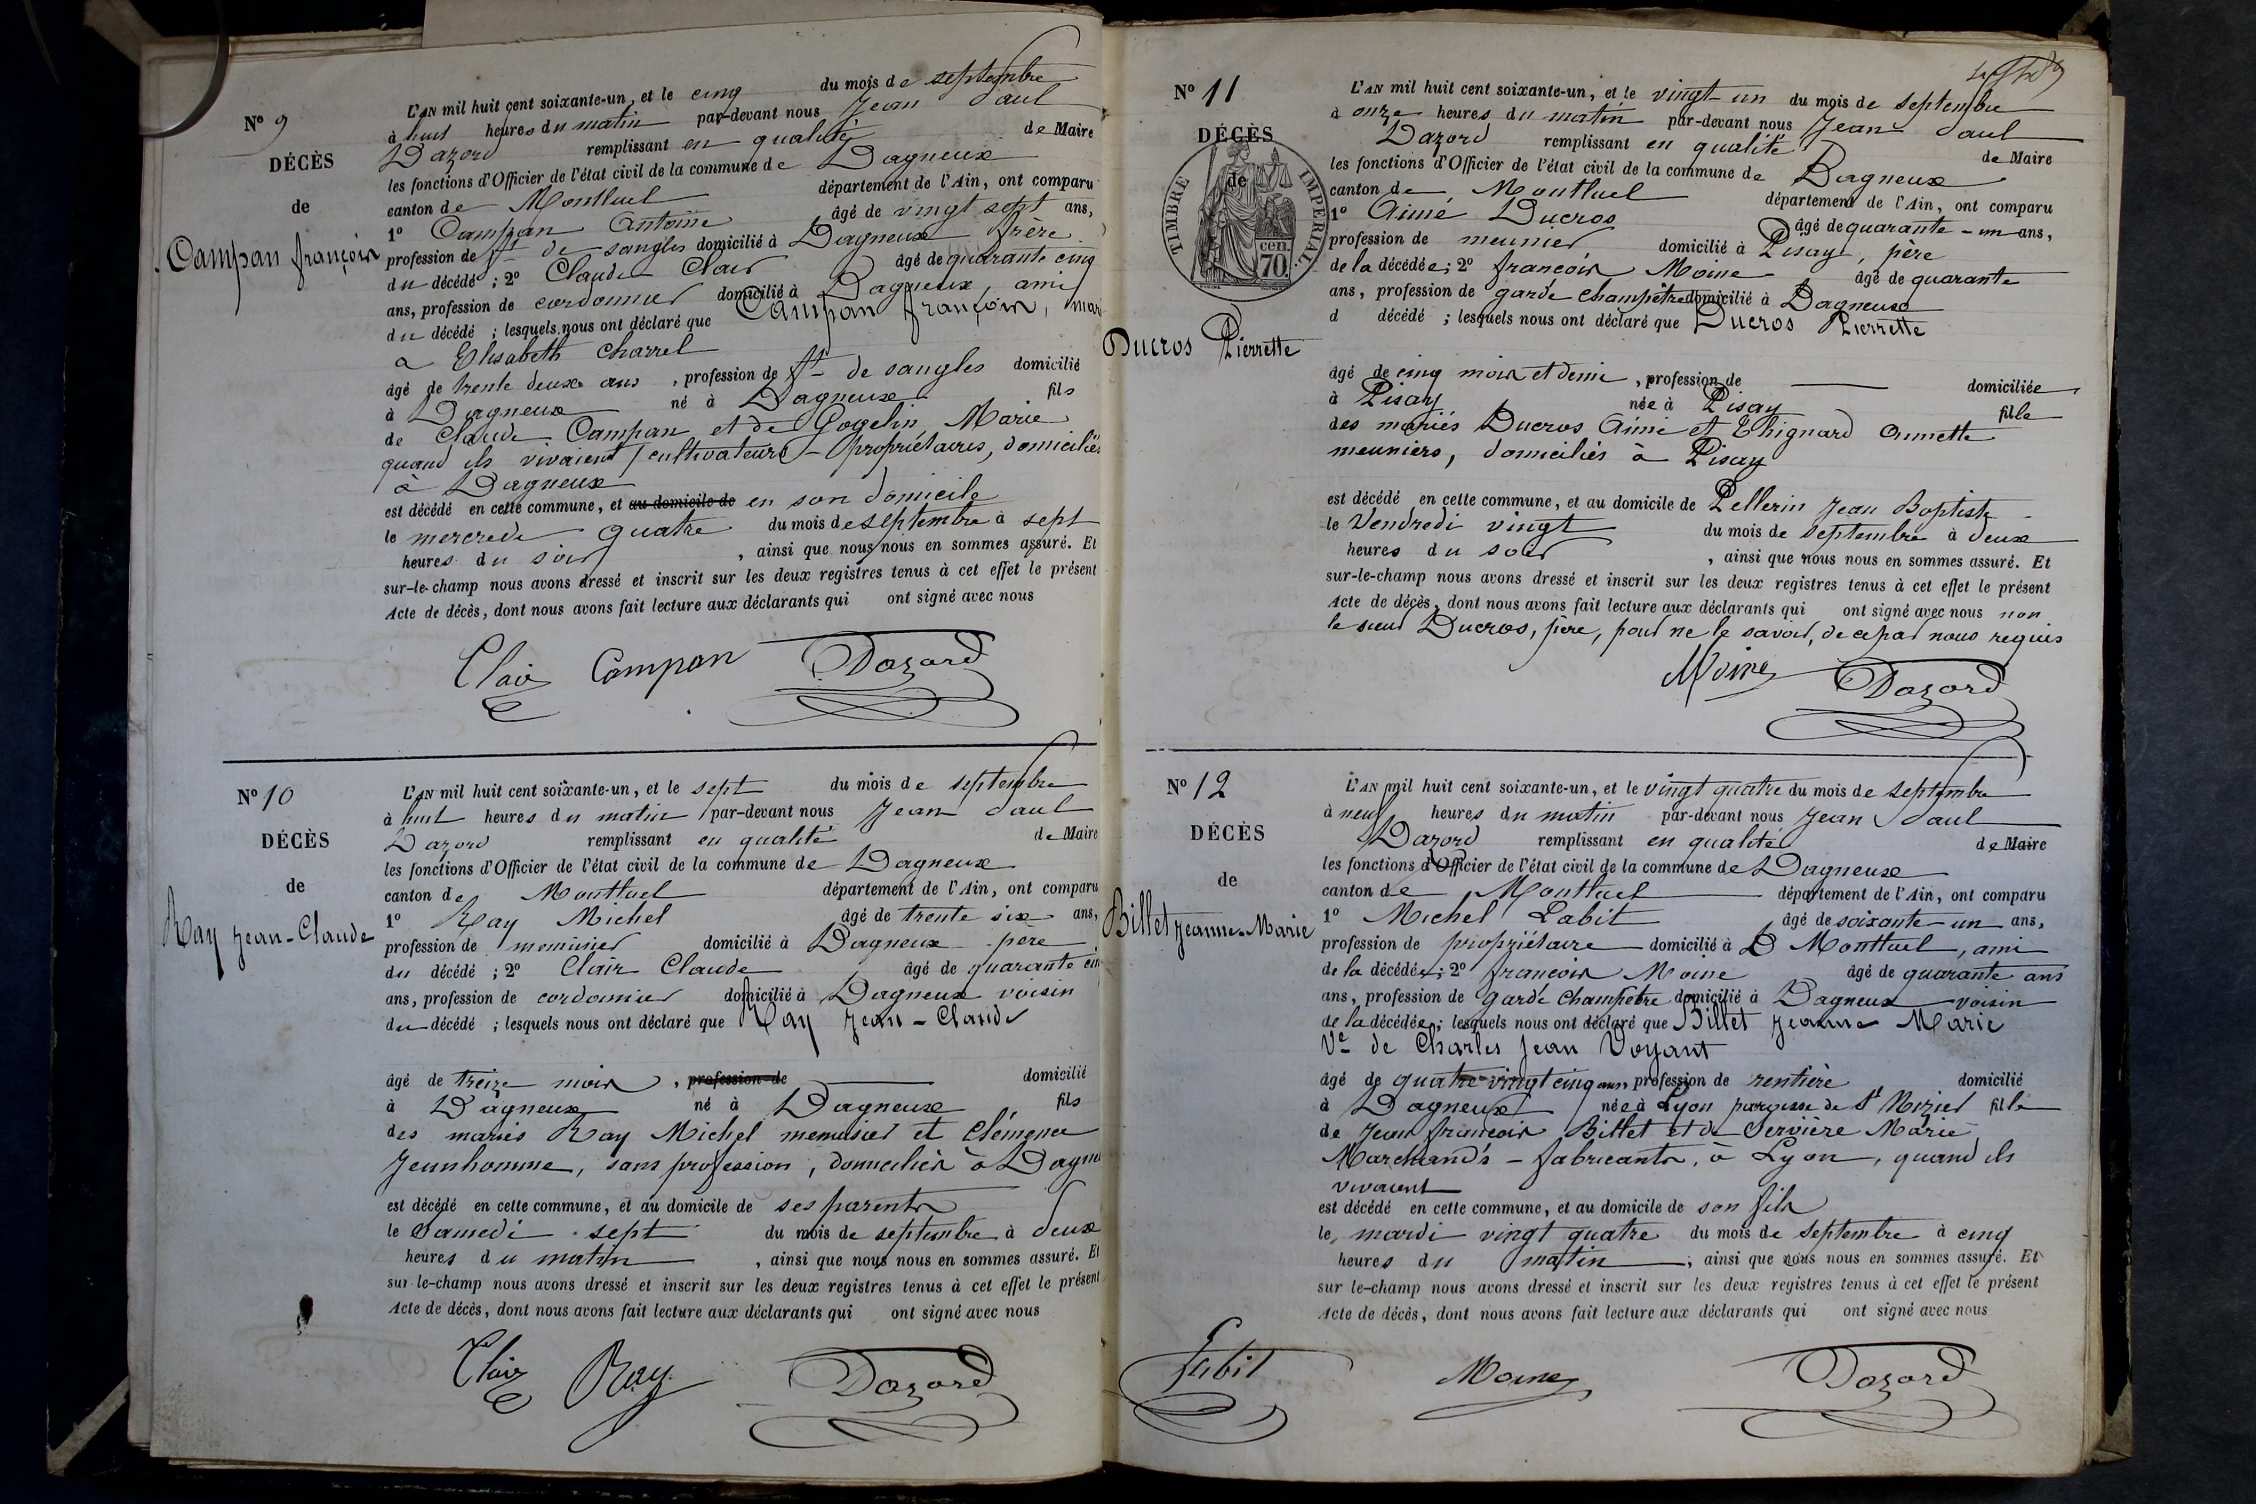 N° 9
DÉCÈS
de
Campan françois
L'AN mil huit cent soixante-un, et le cinq du mois de septembre
à huit heures du matin par-devant nous Jean Paul
Dazord remplissant en qualité de Maire
les fonctions d'Officier de l'état civil de la commune de Dagneux
canton de Montluel département de l'Ain, ont comparu
1° Campan Antoine âgé de vingt sept ans,
profession de ft de sangles domicilié à Dagneux frère
du décédé ; 2° Claude Clair âgé de quarante cinq
ans, profession de cordonnier domicilié à Dagneux, ami
du décédé ; lesquels nous ont déclaré que Campan françois, mari
a Elisabeth Charrel
âgé de trente deux ans, profession de ft de sangles domicilié
à Dagneux né à Dagneux fils
de Claude Campan et de Gogelin Marie
quand ils vivaient cultivateurs - propriétaires, domiciliés
à Dagneux
est décédé en cette commune, et au domicile de en son domicile
le mercredi quatre du mois de septembre à sept
heures du soir, ainsi que nous nous en sommes assuré. Et
sur-le-champ nous avons dressé et inscrit sur les deux registres tenus à cet effet le présent
Acte de décès, dont nous avons fait lecture aux déclarants qui ont signé avec nous
Clair Campan Dazord
N° 10
DÉCÈS
de
Ray Jean-Claude
L'AN mil huit cent soixante-un, et le sept du mois de septembre
à huit heures du matin par-devant nous Jean Paul
Dazord remplissant en qualité de Maire
les fonctions d'Officier de l'état civil de la commune de Dagneux
canton de Montluel département de l'Ain, ont comparu
1° Ray Michel âgé de trente six ans,
profession de menuisier domicilié à Dagneux père
du décédé ; 2° Clair Claude âgé de quarante cin
ans, profession de cordonnier domicilié à Dagneux voisin
du décédé ; lesquels nous ont déclaré que Ray Jean-Claude
âgé de treize mois, profession de domicilié
à Dagneux né à Dagneux fils
des mariés Ray Michel menuisier et Clémence
Jeunhomme, sans profession, domiciliés à Dagne
est décédé en cette commune, et au domicile de ses parents
le Samedi sept du mois de septembre à deux
heures du matin, ainsi que nous nous en sommes assuré. Et
sur-le-champ nous avons dressé et inscrit sur les deux registres tenus à cet effet le présent
Acte de décès, dont nous avons fait lecture aux déclarants qui ont signé avec nous
Clair Ray Dazord
N° 11
DÉCÈS
de
TIMBRE IMPÉRIAL.
70 cen.
Ducros Pierrette
L'AN mil huit cent soixante-un, et le vingt-un du mois de septembre
à onze heures du matin par-devant nous Jean Paul
Dazord remplissant en qualité de Maire
les fonctions d'Officier de l'état civil de la commune de Dagneux
canton de Montluel département de l'Ain, ont comparu
1° Aimé Ducros âgé de quarante-un ans,
profession de meunier domicilié à Pisay, père
de la décédée ; 2° françois Moine âgé de quarante
ans, profession de garde champêtre domicilié à Dagneux
d décédé ; lesquels nous ont déclaré que Ducros Pierrette
âgé de cinq mois et demi, profession de domiciliée
à Pisay née à Pisay fille
des mariés Ducros Aimé et Thignard Annette
meuniers, domiciliés à Pisay
est décédé en cette commune, et au domicile de Pellerin Jean Baptiste
le Vendredi vingt du mois de septembre à deux
heures du soir, ainsi que nous nous en sommes assuré. Et
sur-le-champ nous avons dressé et inscrit sur les deux registres tenus à cet effet le présent
Acte de décès, dont nous avons fait lecture aux déclarants qui ont signé avec nous non
le sieur Ducros, père, pour ne le savoir, de ce par nous requis
Moine Dazord
N° 12
DÉCÈS
de
Billet Jeanne-Marie
L'AN mil huit cent soixante-un, et le vingt quatre du mois de septembre
à neuf heures du matin par-devant nous Jean Paul
Dazord remplissant en qualité de Maire
les fonctions d'Officier de l'état civil de la commune de Dagneux
canton de Montluel département de l'Ain, ont comparu
1° Michel Labit âgé de soixante-un ans,
profession de propriétaire domicilié à D Montluel, ami
de la décédée ; 2° françois Moine âgé de quarante ans
ans, profession de garde champêtre domicilié à Dagneux voisin
de la décédée ; lesquels nous ont déclaré que Billet Jeanne Marie
Ve de Charles Jean Voyant
âgé de quatre vingt cinq ans, profession de rentière domicilié
à Dagneux née à Lyon paroisse de St Nizier fille
de Jean françois Billet et de Servière Marie
Marchands - fabricants, à Lyon, quand ils
vivaient
est décédé en cette commune, et au domicile de son fils
le mardi vingt quatre du mois de septembre à cinq
heures du matin, ainsi que nous nous en sommes assuré. Et
sur le-champ nous avons dressé et inscrit sur les deux registres tenus à cet effet le présent
Acte de décès, dont nous avons fait lecture aux déclarants qui ont signé avec nous
Labit Moine Dazord